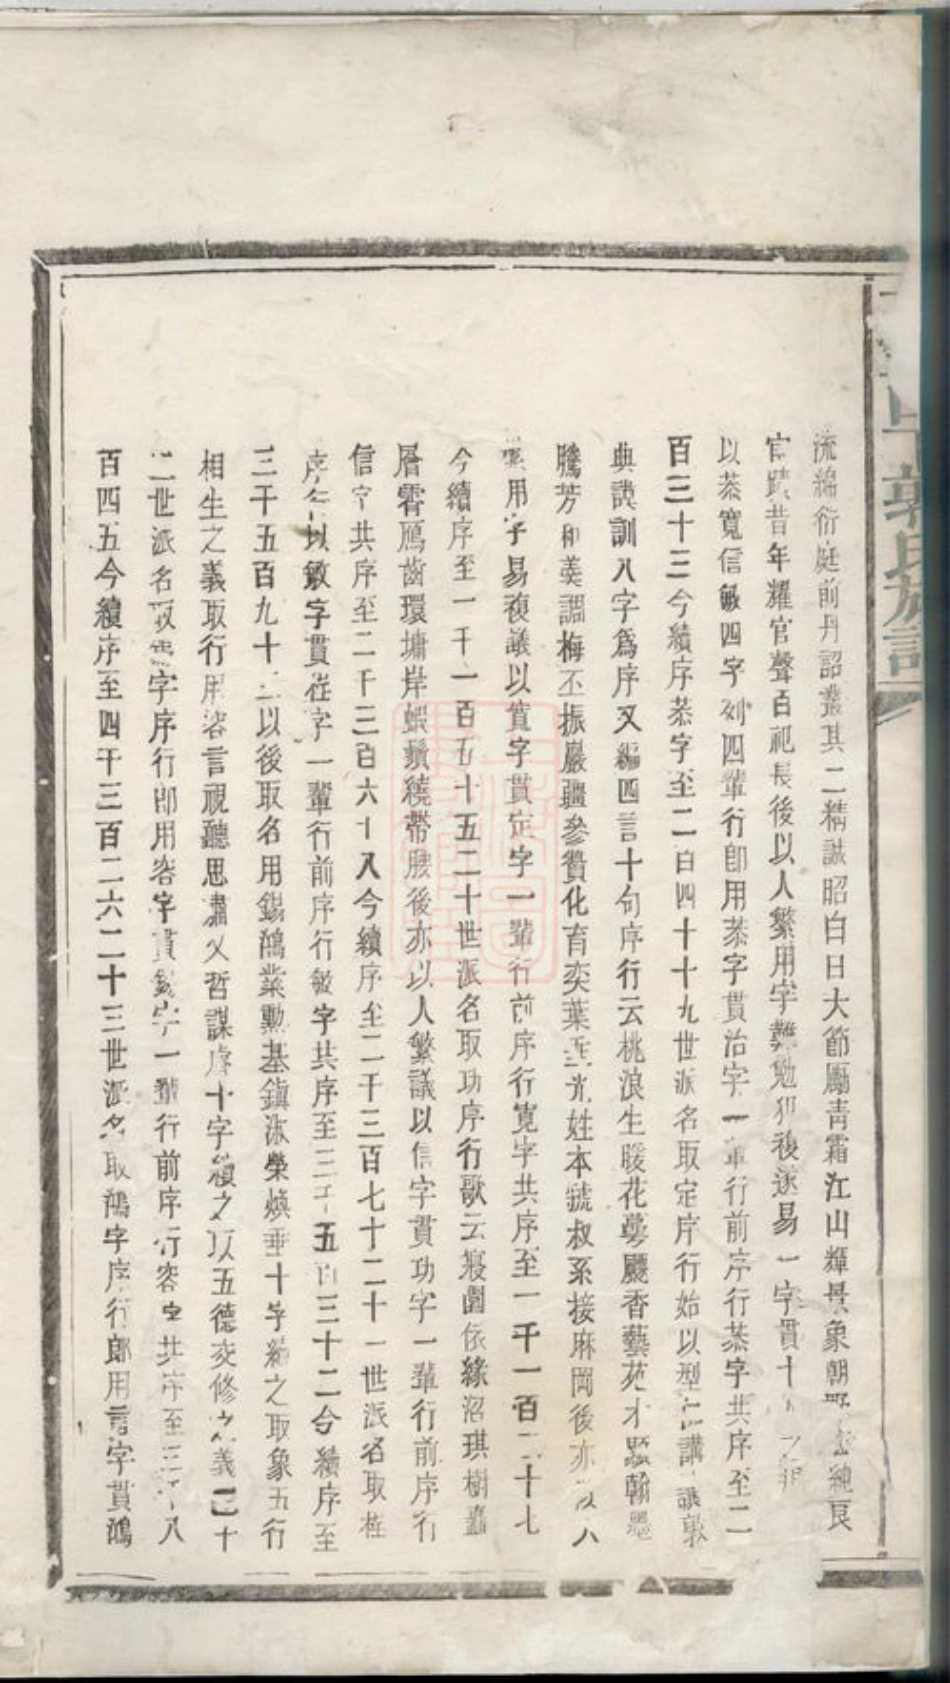 流綿衍庭前丹詔叢其二精誠昭白日大節厲青霜江山輝景象朝野純良
官蹟昔年耀官聲百祀長後以人繁用字難勉犯複遂易一字貫十
以恭寬信敏四字列四輩行卽用恭字貫治字一輩行前序行恭字共序至二
百三十三今續序恭字至二百四十十九世派名取定序行始以型仁講讓敦
典謨訓八字爲序又編四言十句序行云桃浪生暖花萼颺香藝苑才翰墨
騰芳和羹調梅丕振巖疆參贊化育奕葉光姓本虢叔系接麻岡後亦以人
繁用字易複議以寬字貫定字一輩行前序行寬字共序至一千一百二十七
今續序至一千一百五十五二十世派名取功序行歌云寢園依綠沼琪樹矗
層霄鴈齒環墉岸蜈鬚繞帶腰後亦以人繁議以信字貫功字一輩行前序行
信字共序至二千三百六十八今續序至二千三百七十二十一世派名取在
序行以敏字貫在字一輩行前序行敏字共序至三千五百三十二今續序至
三千五百九十二以後取名用錫鴻業勳基鎮淑榮煥垂十字續之取象五行
相生之義取行用容言視聽思肅乂哲謀睿十字續之以五德交修之義二十
二世派名取錫字序行卽用容字貫錫字一輩行前序行容字共序至三千八
百四五今續序至四千三百二六二十三世派名取鴻字序行郎用言字貫鴻
郭氏族譜